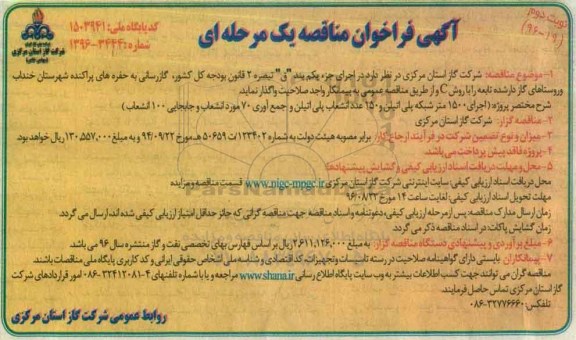 نوبت دوم
(۹۶-۱۹)
آگهی فراخوان مناقصه یک مرحله ای
کد پایگاه ملی: ۱۵۰۳۹۴۱
شماره: ۱۳۹۶-۳۴۴۴
شرکت گاز استان مرکزی
۱-موضوع مناقصه: شرکت گاز استان مرکزی در نظر دارد در اجرای جزء یکم بند "ق" تبصره ۲ قانون بودجه کل کشور، گازرسانی به حفره های پراکنده شهرستان خنداب
وروستاهای گازدار شده تابعه را با روش C و از طریق مناقصه عمومی به پیمانکار واجد صلاحیت واگذار نماید.
شرح مختصر پروژه: (اجرای ۱۵۰۰ متر شبکه پلی اتیلن و ۲۵۰ عدد انشعاب پلی اتیلن و جمع آوری ۷۰ مورد انشعاب و جابجایی ۱۰۰ انشعاب)
۲- مناقصه گزار: شرکت گاز استان مرکزی
۳-میزان و نوع تضمین شرکت در فرآیند ارجاع کار: برابر مصوبه هیئت دولت به شماره ۱۲۳۴۰۲/ت ۵۰۶۵۹ ه مورخ ۹۴/۰۹/۲۲ و به مبلغ ۱۳۰,۵۵۷,۰۰۰ ریال خواهد بود.
۴-پروژه فاقد پیش پرداخت می باشد.
۵-محل و مهلت دریافت اسناد ارزیابی کیفی و گشایش پیشنهادها:
محل دریافت اسناد ارزیابی کیفی: سایت اینترنتی شرکت گاز استان مرکزی www.nigc-mpgc.ir قسمت مناقصه و مزایده
مهلت تحویل اسناد ارزیابی کیفی: لغایت ساعت ۱۴ مورخ
زمان ارسال مدارک مناقصه: پس از مرحله ارزیابی کیفی، دعوتنامه و اسناد مناقصه جهت مناقصه گرانی که حائز حداقل امتیاز ارزیابی کیفی شده اند ارسال می گردد.
زمان گشایش پاکات در اسناد مناقصه ذکر می گردد
۶-مبلغ برآوردی و پیشنهادی دستگاه مناقصه گزار: به مبلغ ۲,۶۱۱,۱۲۶,۰۰۰ ریال بر اساس فهارس بهای تخصصی نفت و گاز منتشره سال ۹۶ می باشد.
۷-پیمانکاران بایستی دارای گواهینامه صلاحیت در رسته تاسیسات و تجهیزات، کد اقتصادی و شناسه ملی اشخاص حقوقی ایرانی و کد کاربری پایگاه ملی مناقصات باشند.
مناقصه گران می توانند جهت کسب اطلاعات بیشتر به وب سایت پایگاه اطلاع رسانی www.shana.ir مراجعه و یا با شماره تلفنهای ۴-۳۲۴۱۲۰۸۱-۰۸۶ امور قراردادهای شرکت
گاز استان مرکزی تماس حاصل فرمایند.
تلفکس: ۳۲۷۷۶۶۶۰-۰۸۶
روابط عمومی شرکت گاز استان مرکزی